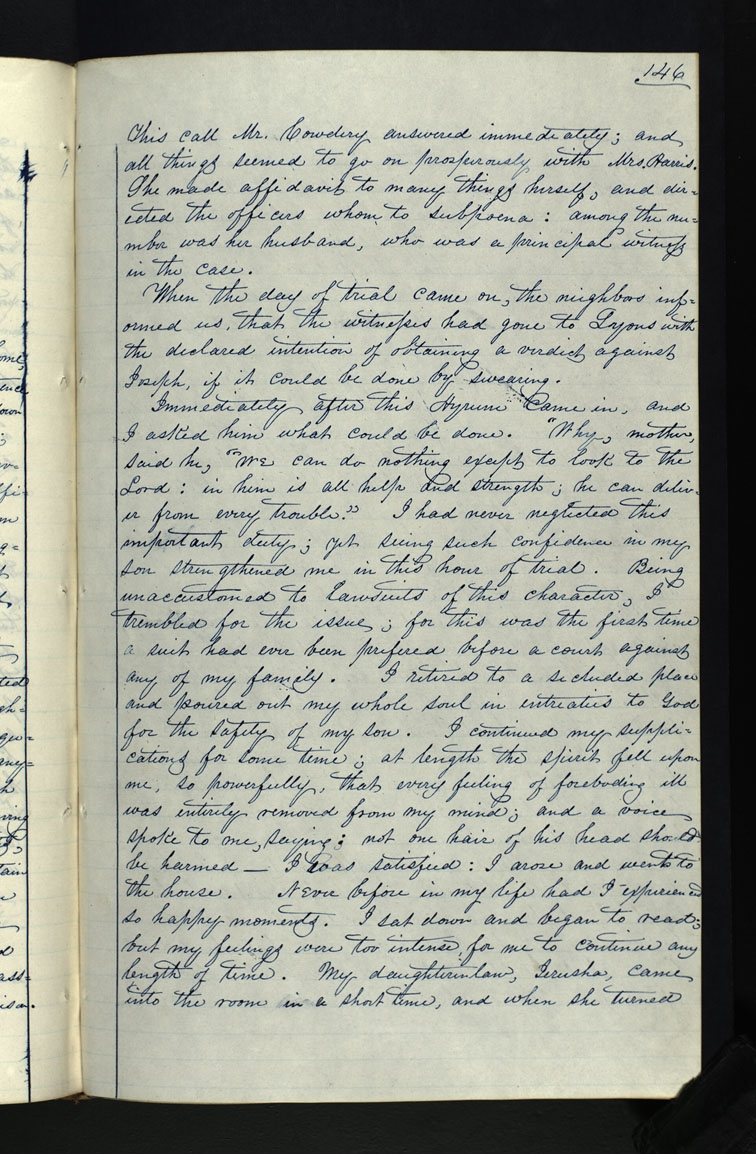 146
This call Mr. Cowdery answered immediately; and
all things seemed to go on prosperously with Mrs. Harris.
She made affidavit to many things herself, and dir=
ected the officers whom to subpoena: among the nu=
mber was her husband, who was a principal witness
in the case.
When the day of trial came on, the neighbors inf=
ormed us, that the witnesses had gone to Lyons with
the declared intention of obtaining a verdict against
Joseph, if it could be done by swearing.
Immediately after this Hyrum came in, and
I asked him what could be done. "Why, mother,
said he, "We can do nothing except to look to the
Lord: in him is all help and strength; he can deliv-
er from every trouble." I had never neglected this
important duty; yet seeing such confidence in my
son strengthened me in this hour of trial. Being
unaccustomed to Lawsuits of this character, I
trembled for the issue; for this was the first time
a suit had ever been prefered before a court against
any of my family. I retired to a secluded place
and poured out my whole soul in entreaties to God
for the safety of my son. I continued my suppli=
cations for some time; at length the spirit fell upon
me, so powerfully, that every feeling of foreboding ill
was entirely removed from my mind; and a voice
spoke to me, saying: not one hair of his head should
be harmed — I was satisfied: I arose and went to
the house. Never before in my life had I experienced
so happy moments. I sat down and began to read;
but my feelings were too intense for me to continue any
length of time. My daughterinlaw, Jerusha, came
into the room in a short time, and when she turned